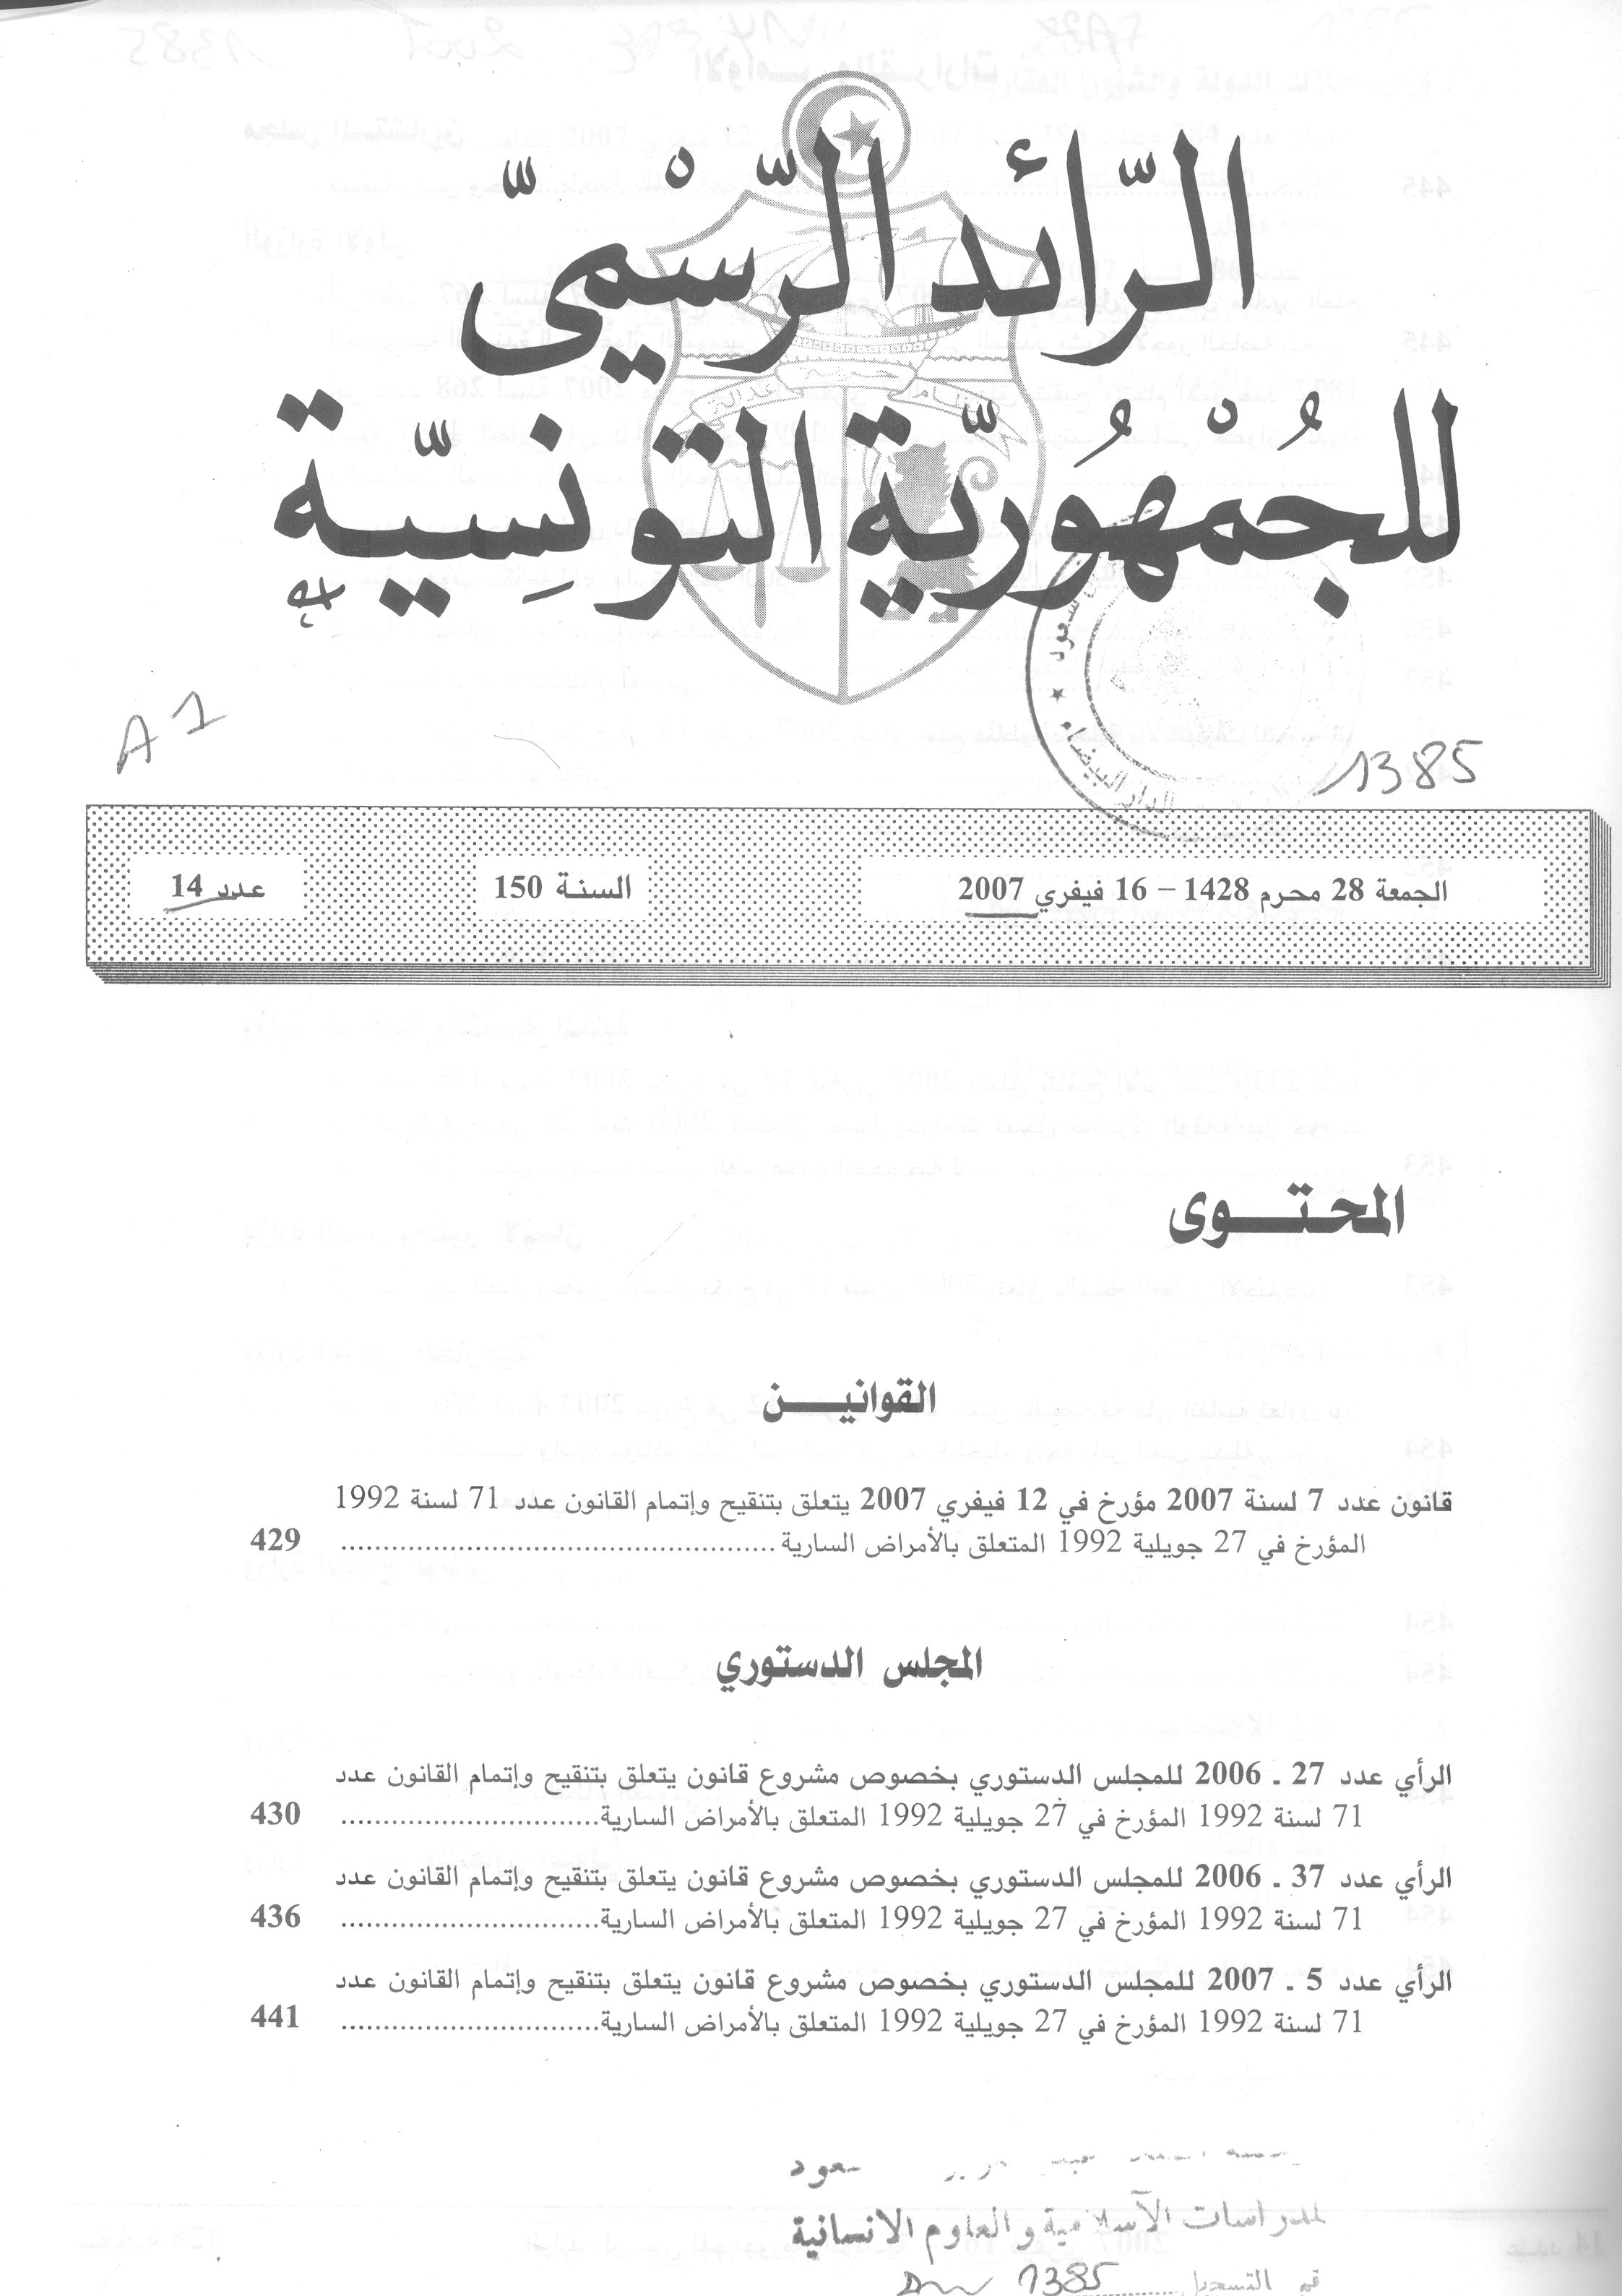 الرّائد الرّسْميّ
للجُمْهُوريّة التّونِسيّة
حرية
نظام
عدالة
سعود
A 1
الدار البيضاء
1385
الجمعة 28 محرم 1428 – 16 فيفري 2007
السنة 150
عدد 14
المحتــوى
القوانيــن
قانون عدد 7 لسنة 2007 مؤرخ في 12 فيفري 2007 يتعلق بتنقيح وإتمام القانون عدد 71 لسنة 1992
المؤرخ في 27 جويلية 1992 المتعلق بالأمراض السارية .................................................... 429
المجلس الدستوري
الرأي عدد 27 ـ 2006 للمجلس الدستوري بخصوص مشروع قانون يتعلق بتنقيح وإتمام القانون عدد
71 لسنة 1992 المؤرخ في 27 جويلية 1992 المتعلق بالأمراض السارية............................... 430
الرأي عدد 37 ـ 2006 للمجلس الدستوري بخصوص مشروع قانون يتعلق بتنقيح وإتمام القانون عدد
71 لسنة 1992 المؤرخ في 27 جويلية 1992 المتعلق بالأمراض السارية............................... 436
الرأي عدد 5 ـ 2007 للمجلس الدستوري بخصوص مشروع قانون يتعلق بتنقيح وإتمام القانون عدد
71 لسنة 1992 المؤرخ في 27 جويلية 1992 المتعلق بالأمراض السارية............................... 441
سعود
للدراسات الآسلامية والعلوم الانسانية
رقم التسجيل 1385